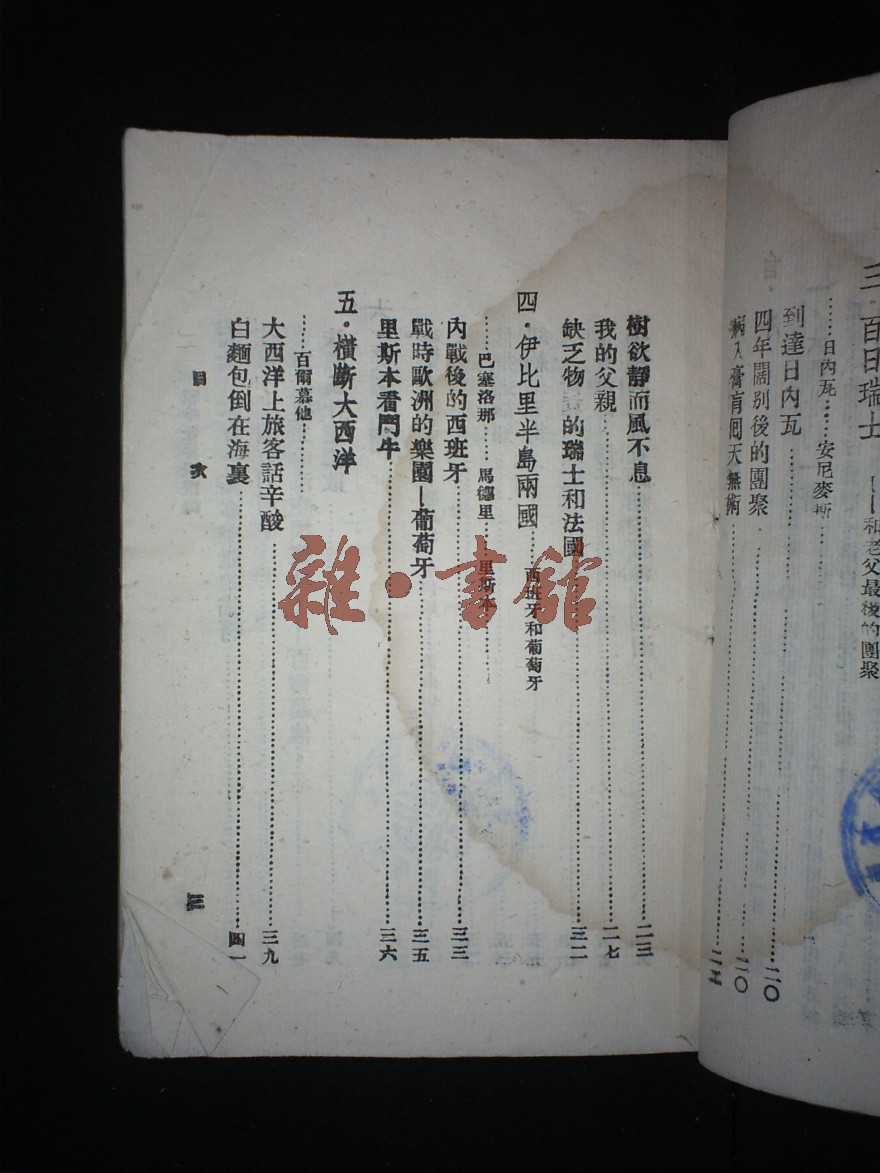 三·百日瑞士——和老父最後的團聚
……日內瓦……安尼麥斯
到達日內瓦……二〇
四年闊別後的團聚……二〇
病入膏肓回天無術……二
樹欲靜而風不息……二三
我的父親……二七
缺乏物 的瑞士和法國……三二
四·伊比里半島兩國……西班牙和葡萄牙
……巴塞洛那……馬德里……里斯本……
內戰後的西班牙……三三
戰時歐洲的樂園—葡萄牙……三五
里斯本看鬥牛……三六
五·橫斷大西洋
……百爾慕他……
大西洋上旅客話辛酸……三九
白麵包倒在海裏……四一
目 次
三
雜·書館